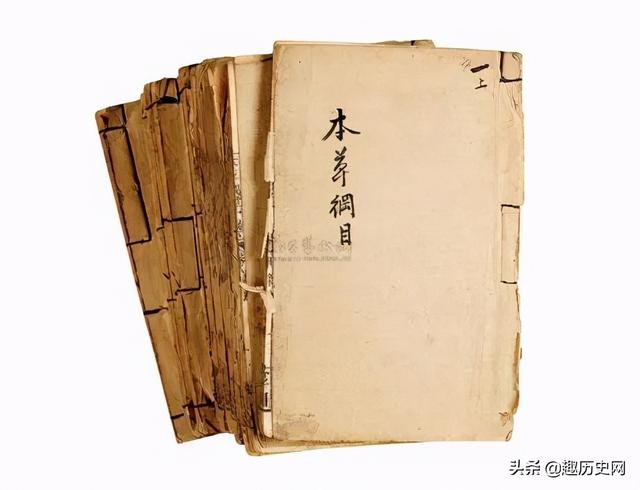 一上
本草綱目
头条 @趣历史网